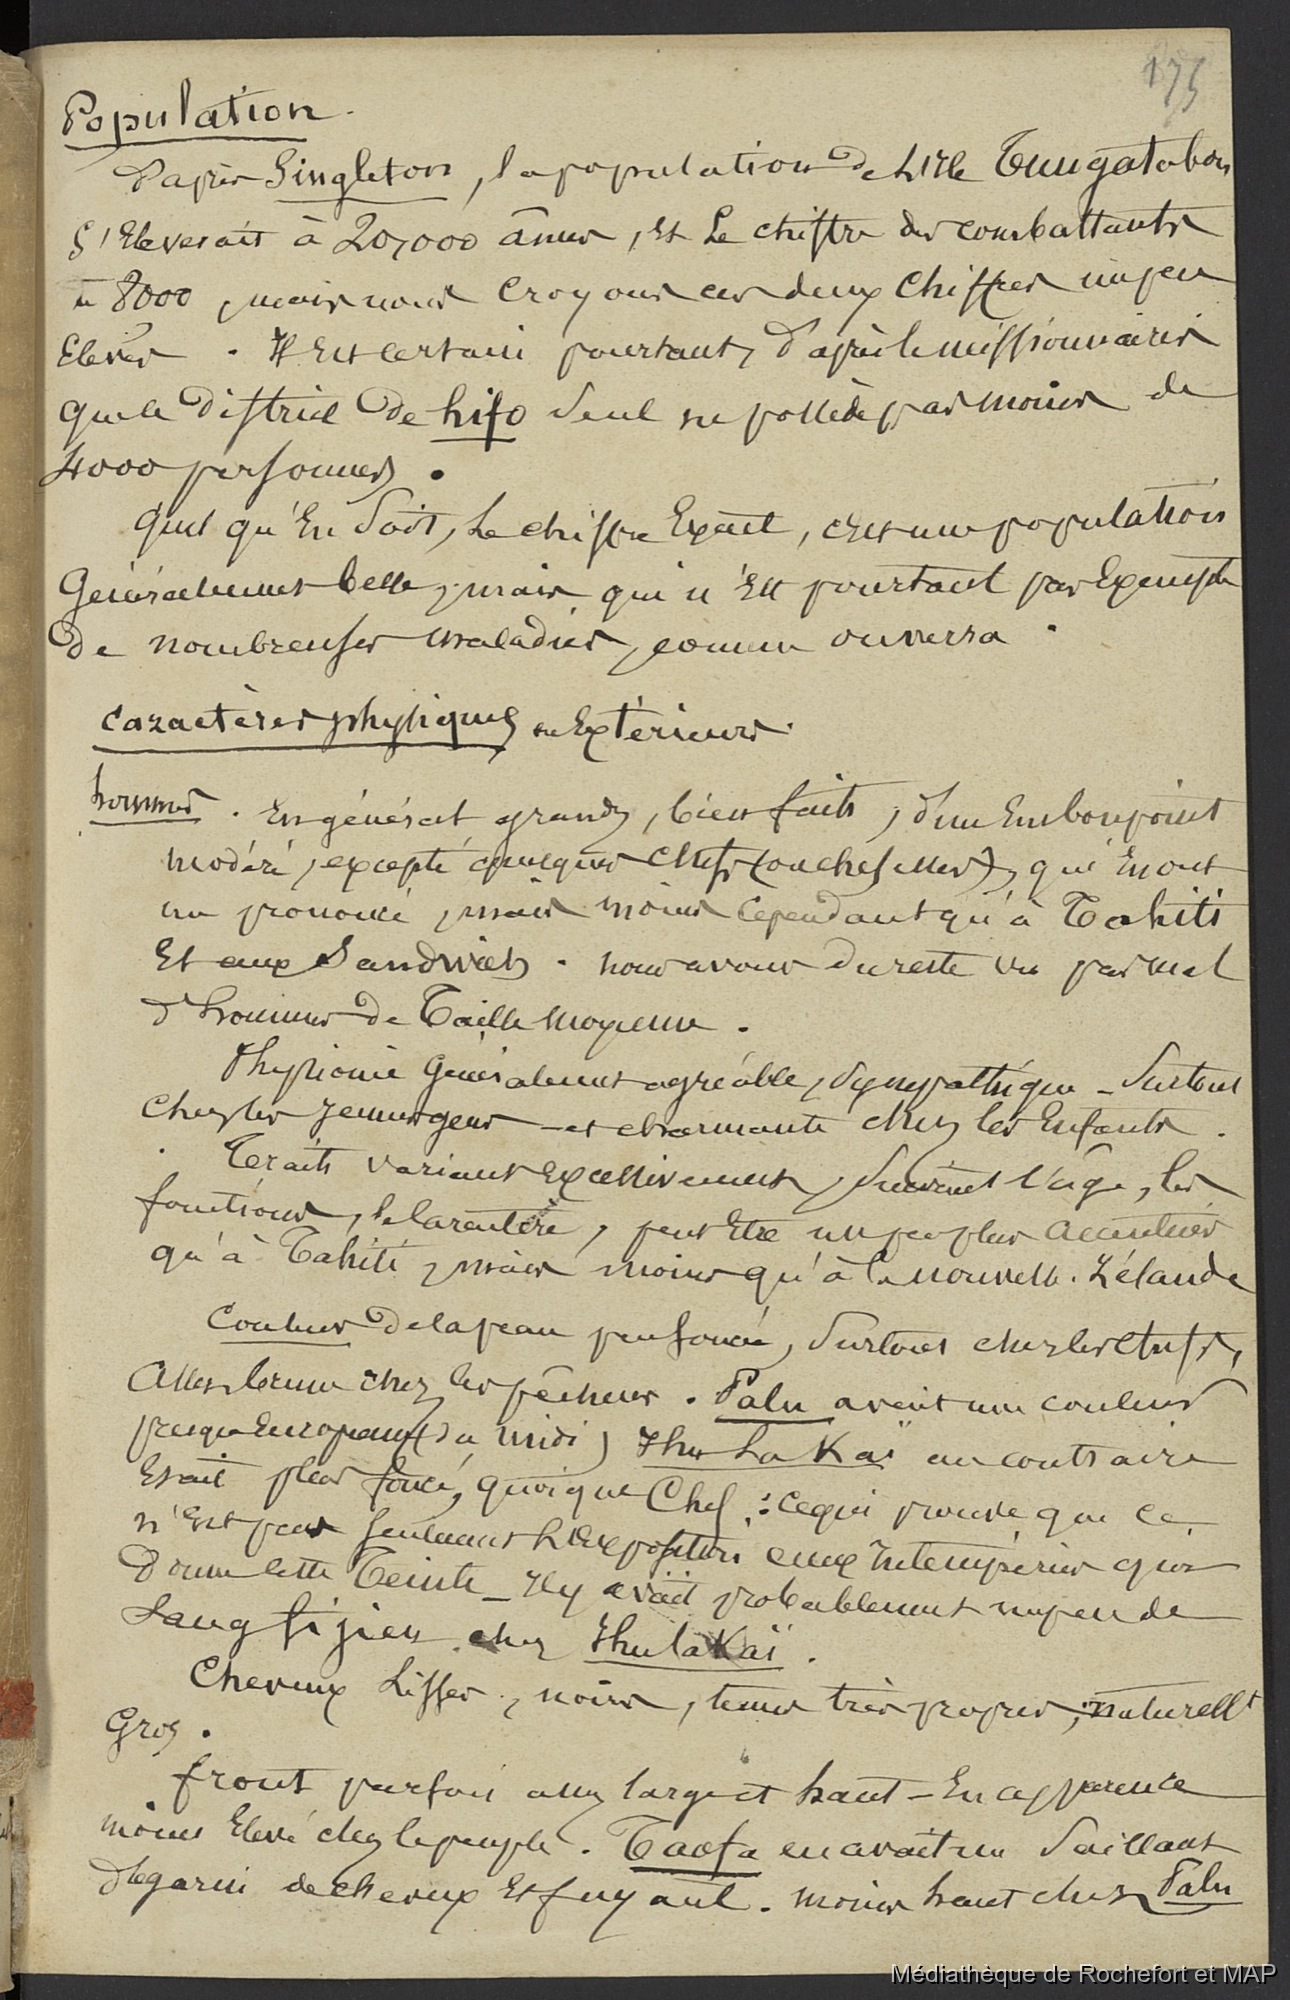 175
Population.
D'après Singleton, la population de L'Ile Tungatabou
S'Eleverait à 20,000 âmes, Et Le chiffre des combattants
à 8000, mais nous Croyons ces deux Chiffres un peu
Elevés. Il Est certain pourtant, d'après le missionnaires
que le District De hifo Seul ne possède pas moins de
4000 personnes.
Quel qu'En Soit, Le chiffre Exact, c'est une population
Généralement belle, mais qui n'Est pourtant pas Exempte
De nombreuses maladies, comme on verra.
Caractères physiques ou Extérieurs.
hommes. En général grands, bien faits, d'un Embonpoint
modéré, excepté quelques Chefs (ou cheffesses), qui En ont
un prononcé, mais moins Cependant qu'à Tahiti
Et aux Sandwich. nous avons du reste vu pas mal
d'hommes de Taille moyenne.
Physionie Généralement agréable, Sympathique - Surtout
Chez les jeunes gens - et charmante chez les Enfants.
Traits variant Excessivement, Suivant l'âge, les
fonctions, le Caractère, peut Etre un peu plus accentués
qu'à Tahiti, mais moins qu'à la nouvelle. Zélande
Couleur de la peau peu foncée, Surtout chez les chefs,
Assez brune chez les pêcheurs. Palu avait une couleur
presque Européenne (du midi) au contraire
Etait plus foncé, quoique Chef : Ce qui prouve que ce
n'Est pas Seulement L'Exposition aux Intempéries qui
Donne cette Teinte - Il y avait probablement un peu de
Sang fijien chez Thulakaï.
Cheveux Lisses, noirs, tenus très propres, naturellt
Gros.
front parfois assez large et haut - En apparence
moins Elevé chez le peuple. Taofa en avait un Saillant
dégarni de cheveux Et fuyant. moins haut chez Palu
Médiathèque de Rochefort et MAP